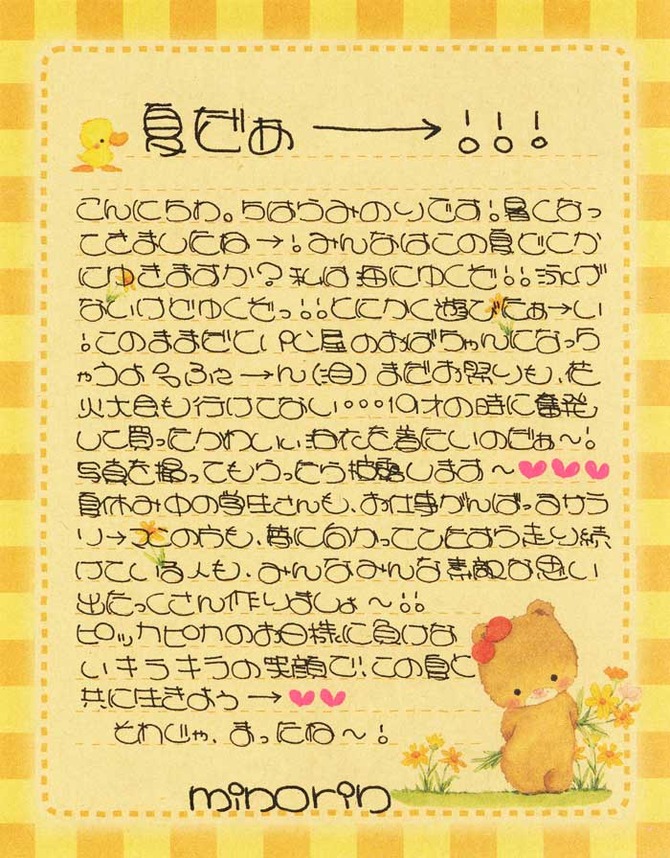 夏だぁ→!!!
こんにちわ。ちはらみのりです!暑くなっ
てきましたね→!みんなはこの夏どこか
にゆきますか?私は海にゆくぞ!!泳げ
ないけどゆくぞっ!!とにかく遊びたぁ→い
!このままだとPC屋のおばちゃんになっち
ゃうよぅふぅ→ん(泪)まだお祭りも、花
火大会も行けてない。。。19才の時に奮発
して買ったかわいいゆかたを着たいのだぁ~!
写真を撮ってもらったら披露します~♥♥♥
夏休み中の学生さんも、お仕事がんばっるサラ
リ→の方も、夢に向かってひたすら走り続
けている人も、みんなみんな素敵な思い
出たっくさん作りましょ~!!
ピッカピカのお日様に負けな
いキラキラの笑顔で!!この夏を
共に生きよう→♥♥
それじゃ、まったね~!
minorin